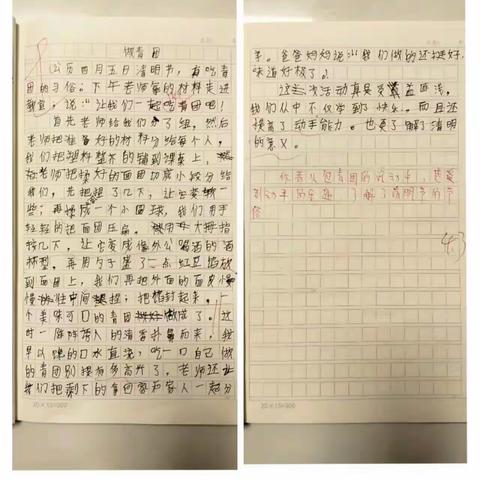 做青团
公历四月五日清明节，有吃青
团的习俗。下午老师拿的材料走进
教室，说：“让我们一起吃青团吧！
首先老师给我们分了组，然后
老师把准备好的材料分给每个人，
我们把塑料垫布的铺到课桌上，
老师把揉好的面团切成小段分给
我们，先把捏了几下，让它变软一
些；再揉成一个小圆球，我们用手
轻轻的把面团压扁。用大拇指
按几下，让它变成像外公喝酒的酒
杯型。再用勺子盛了一点红豆馅放
到面团上，我们再把外面的面皮慢
慢往中间捏；把馅封起来。一
个美味可口的青团做成了。这
时一阵阵诱人的清香扑鼻而来，我
早以馋的口水直流，吃一口自己做
的青团别提有多高兴了。老师还让
我们把剩下的青团带和家人一起分
享。爸爸妈妈说：“我们做的还挺好，
味道好极了。
这次活动真是受益匪浅，
我们从中不仅学到了快乐。而且还
提高了动手能力。也更了解了清明
的意义。
作者从包青团的活动中，感受
到动手的乐趣，了解了清明节的节
俗
4.3
20×15=300